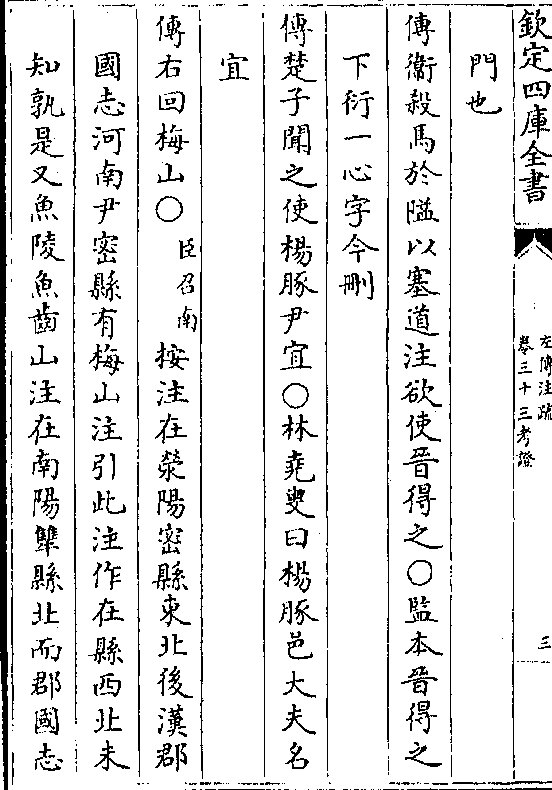 欽定四庫全書
左傳注疏
卷三十三考證
三
門也
傳衞殺馬於隘以塞道注欲使晉得之〇監本晉得之
下衍一心字今刪
傳楚子聞之使楊豚尹宜〇林堯叟曰楊豚邑大夫名
宜
傳右回梅山〇臣召南按注在滎陽密縣東北後漢郡
國志河南尹密縣有梅山注引此注作在縣西北未
知孰是又魚陵魚齒山注在南陽犨縣北而郡國志